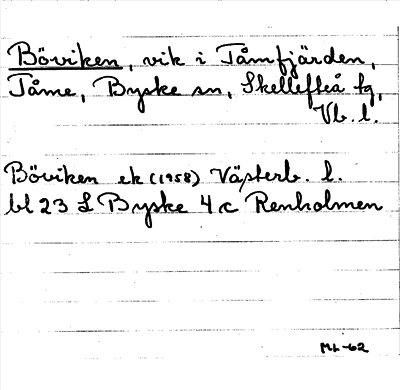 Böviken, vik i Tåmfjärden,
Tåme, Byske sn, Skellefteå tg,
Vb. l.
Böviken ek (1958) Västerb. l.
bl 23 L Byske 4 c Renholmen
ML -62